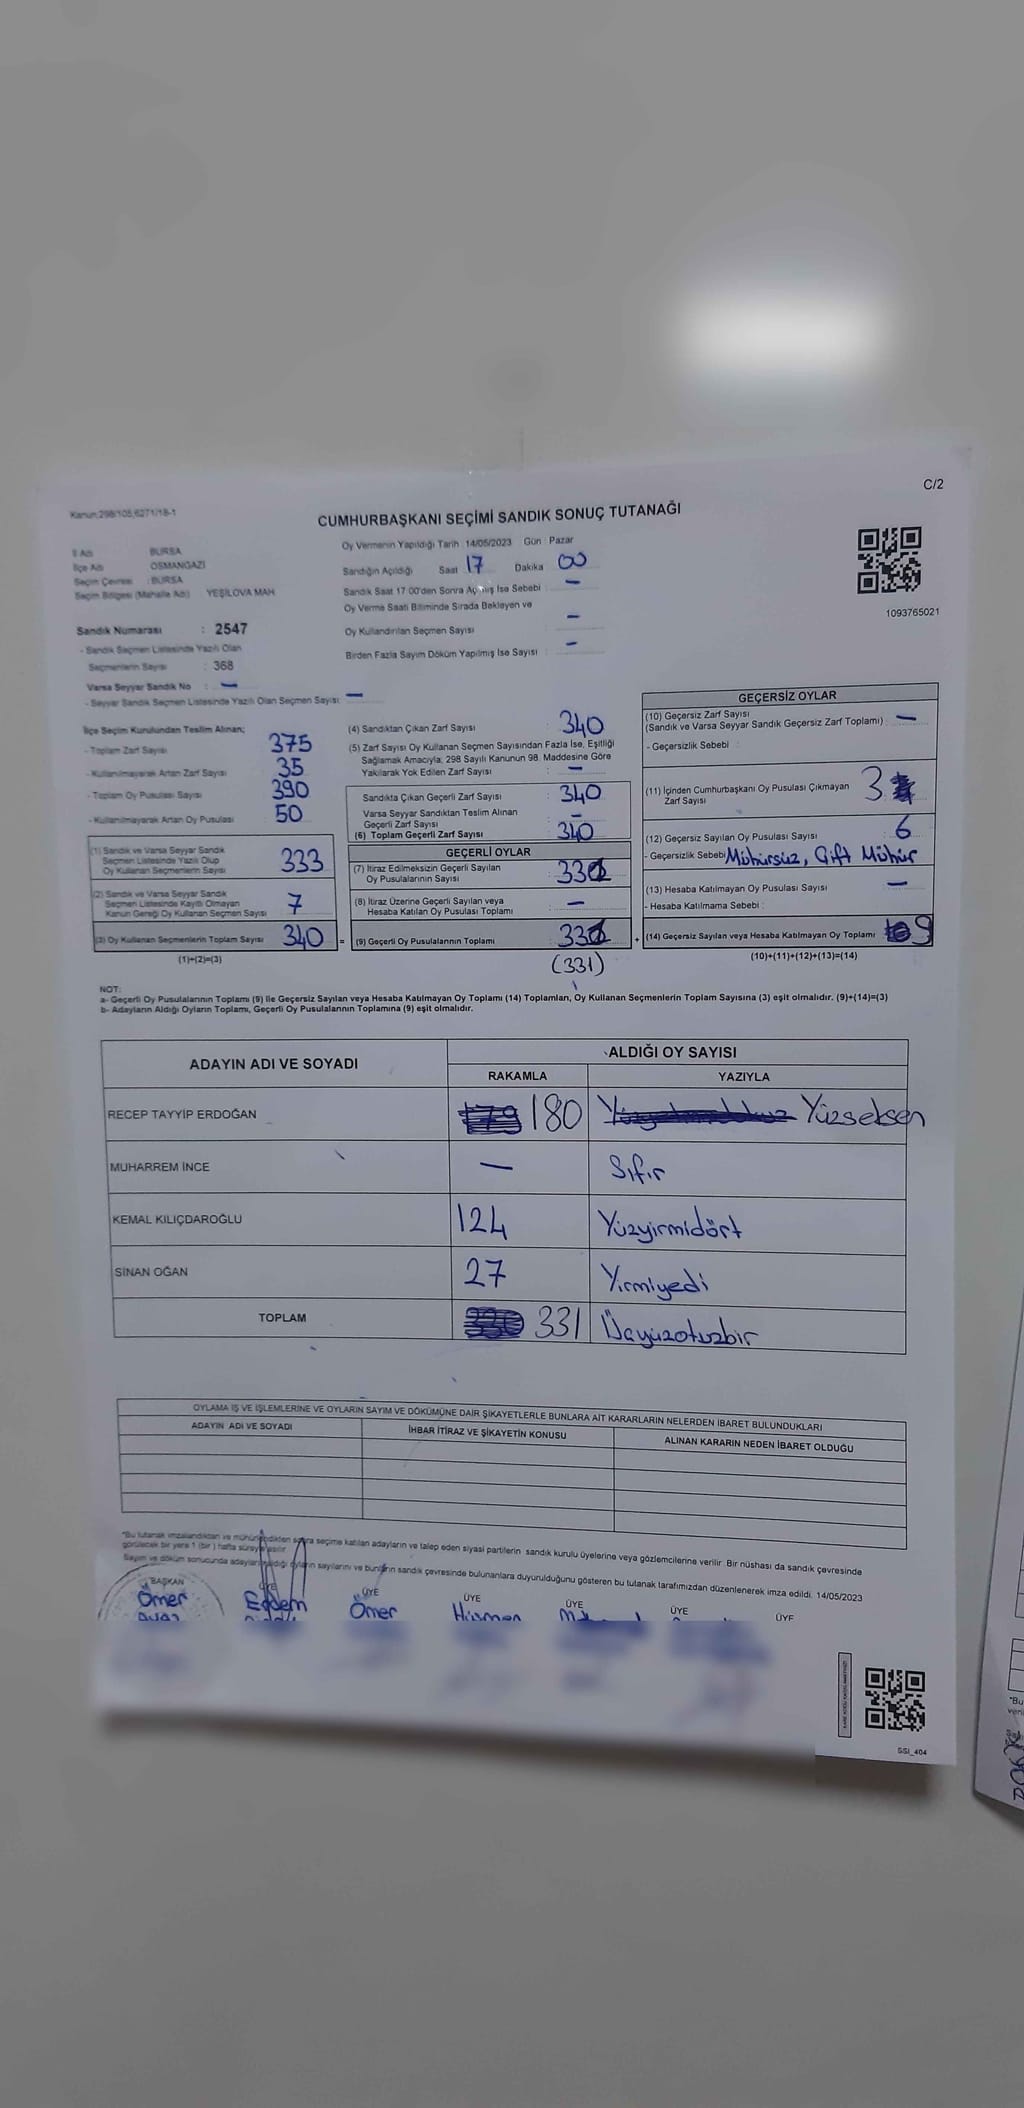 C/2
Kanun:298/105,6271/18-1
CUMHURBAŞKANI SEÇİMİ SANDIK SONUÇ TUTANAĞI
İl Adı : BURSA
İlçe Adı : OSMANGAZİ
Seçim Çevresi : BURSA
Seçim Bölgesi (Mahalle Adı) : YEŞİLOVA MAH
Sandık Numarası : 2547
- Sandık Seçmen Listesinde Yazılı Olan
Seçmenlerin Sayısı : 368
Varsa Seyyar Sandık No : —
- Seyyar Sandık Seçmen Listesinde Yazılı Olan Seçmen Sayısı : —
Oy Vermenin Yapıldığı Tarih : 14/05/2023 Gün : Pazar
Sandığın Açıldığı Saat 17 Dakika 00
Sandık Saat 17:00'den Sonra Açılmış İse Sebebi : —
Oy Verme Saati Bitiminde Sırada Bekleyen ve
Oy Kullandırılan Seçmen Sayısı : —
Birden Fazla Sayım Döküm Yapılmış İse Sayısı : —
1093765021
İlçe Seçim Kurulundan Teslim Alınan;
- Toplam Zarf Sayısı : 375
- Kullanılmayarak Artan Zarf Sayısı : 35
- Toplam Oy Pusulası Sayısı : 390
- Kullanılmayarak Artan Oy Pusulası : 50
(1) Sandık ve Varsa Seyyar Sandık
Seçmen Listesinde Yazılı Olup
Oy Kullanan Seçmenlerin Sayısı : 333
(2) Sandık ve Varsa Seyyar Sandık
Seçmen Listesinde Kayıtlı Olmayan
Kanun Gereği Oy Kullanan Seçmen Sayısı : 7
(3) Oy Kullanan Seçmenlerin Toplam Sayısı : 340
(1)+(2)=(3)
(4) Sandıktan Çıkan Zarf Sayısı : 340
(5) Zarf Sayısı Oy Kullanan Seçmen Sayısından Fazla İse, Eşitliği
Sağlamak Amacıyla; 298 Sayılı Kanunun 98. Maddesine Göre
Yakılarak Yok Edilen Zarf Sayısı : —
Sandıkta Çıkan Geçerli Zarf Sayısı : 340
Varsa Seyyar Sandıktan Teslim Alınan
Geçerli Zarf Sayısı : —
(6) Toplam Geçerli Zarf Sayısı : 340
GEÇERLİ OYLAR
(7) İtiraz Edilmeksizin Geçerli Sayılan
Oy Pusulalarının Sayısı : 331
(8) İtiraz Üzerine Geçerli Sayılan veya
Hesaba Katılan Oy Pusulası Toplamı : —
= (9) Geçerli Oy Pusulalarının Toplamı : 331
(331)
GEÇERSİZ OYLAR
(10) Geçersiz Zarf Sayısı
(Sandık ve Varsa Seyyar Sandık Geçersiz Zarf Toplamı) : —
- Geçersizlik Sebebi :
(11) İçinden Cumhurbaşkanı Oy Pusulası Çıkmayan
Zarf Sayısı : 3
(12) Geçersiz Sayılan Oy Pusulası Sayısı : 6
- Geçersizlik Sebebi Mühürsüz, Çift Mühür
(13) Hesaba Katılmayan Oy Pusulası Sayısı : —
- Hesaba Katılmama Sebebi :
+ (14) Geçersiz Sayılan veya Hesaba Katılmayan Oy Toplamı : 9
(10)+(11)+(12)+(13)=(14)
NOT:
a- Geçerli Oy Pusulalarının Toplamı (9) ile Geçersiz Sayılan veya Hesaba Katılmayan Oy Toplamı (14) Toplamları, Oy Kullanan Seçmenlerin Toplam Sayısına (3) eşit olmalıdır. (9)+(14)=(3)
b- Adayların Aldığı Oyların Toplamı, Geçerli Oy Pusulalarının Toplamına (9) eşit olmalıdır.
ADAYIN ADI VE SOYADI
ALDIĞI OY SAYISI
RAKAMLA YAZIYLA
RECEP TAYYİP ERDOĞAN 180 Yüzseksen
MUHARREM İNCE — Sıfır
KEMAL KILIÇDAROĞLU 124 Yüzyirmidört
SİNAN OĞAN 27 Yirmiyedi
TOPLAM 331 Üçyüzotuzbir
OYLAMA İŞ VE İŞLEMLERİNE VE OYLARIN SAYIM VE DÖKÜMÜNE DAİR ŞİKAYETLERLE BUNLARA AİT KARARLARIN NELERDEN İBARET BULUNDUKLARI
ADAYIN ADI VE SOYADI İHBAR İTİRAZ VE ŞİKAYETİN KONUSU ALINAN KARARIN NEDEN İBARET OLDUĞU
*Bu tutanak imzalandıktan ve mühürlendikten sonra seçime katılan adayların ve talep eden siyasi partilerin sandık kurulu üyelerine veya gözlemcilerine verilir. Bir nüshası da sandık çevresinde
görülecek bir yere 1 (bir) hafta süreyle asılır.
Sayım ve döküm sonucunda adayların aldığı oyların sayılarını ve bunların sandık çevresinde bulunanlara duyurulduğunu gösteren bu tutanak tarafımızdan düzenlenerek imza edildi. 14/05/2023
BAŞKAN ÜYE ÜYE ÜYE ÜYE ÜYE ÜYE
Ömer Erdem Ömer
SSI_404